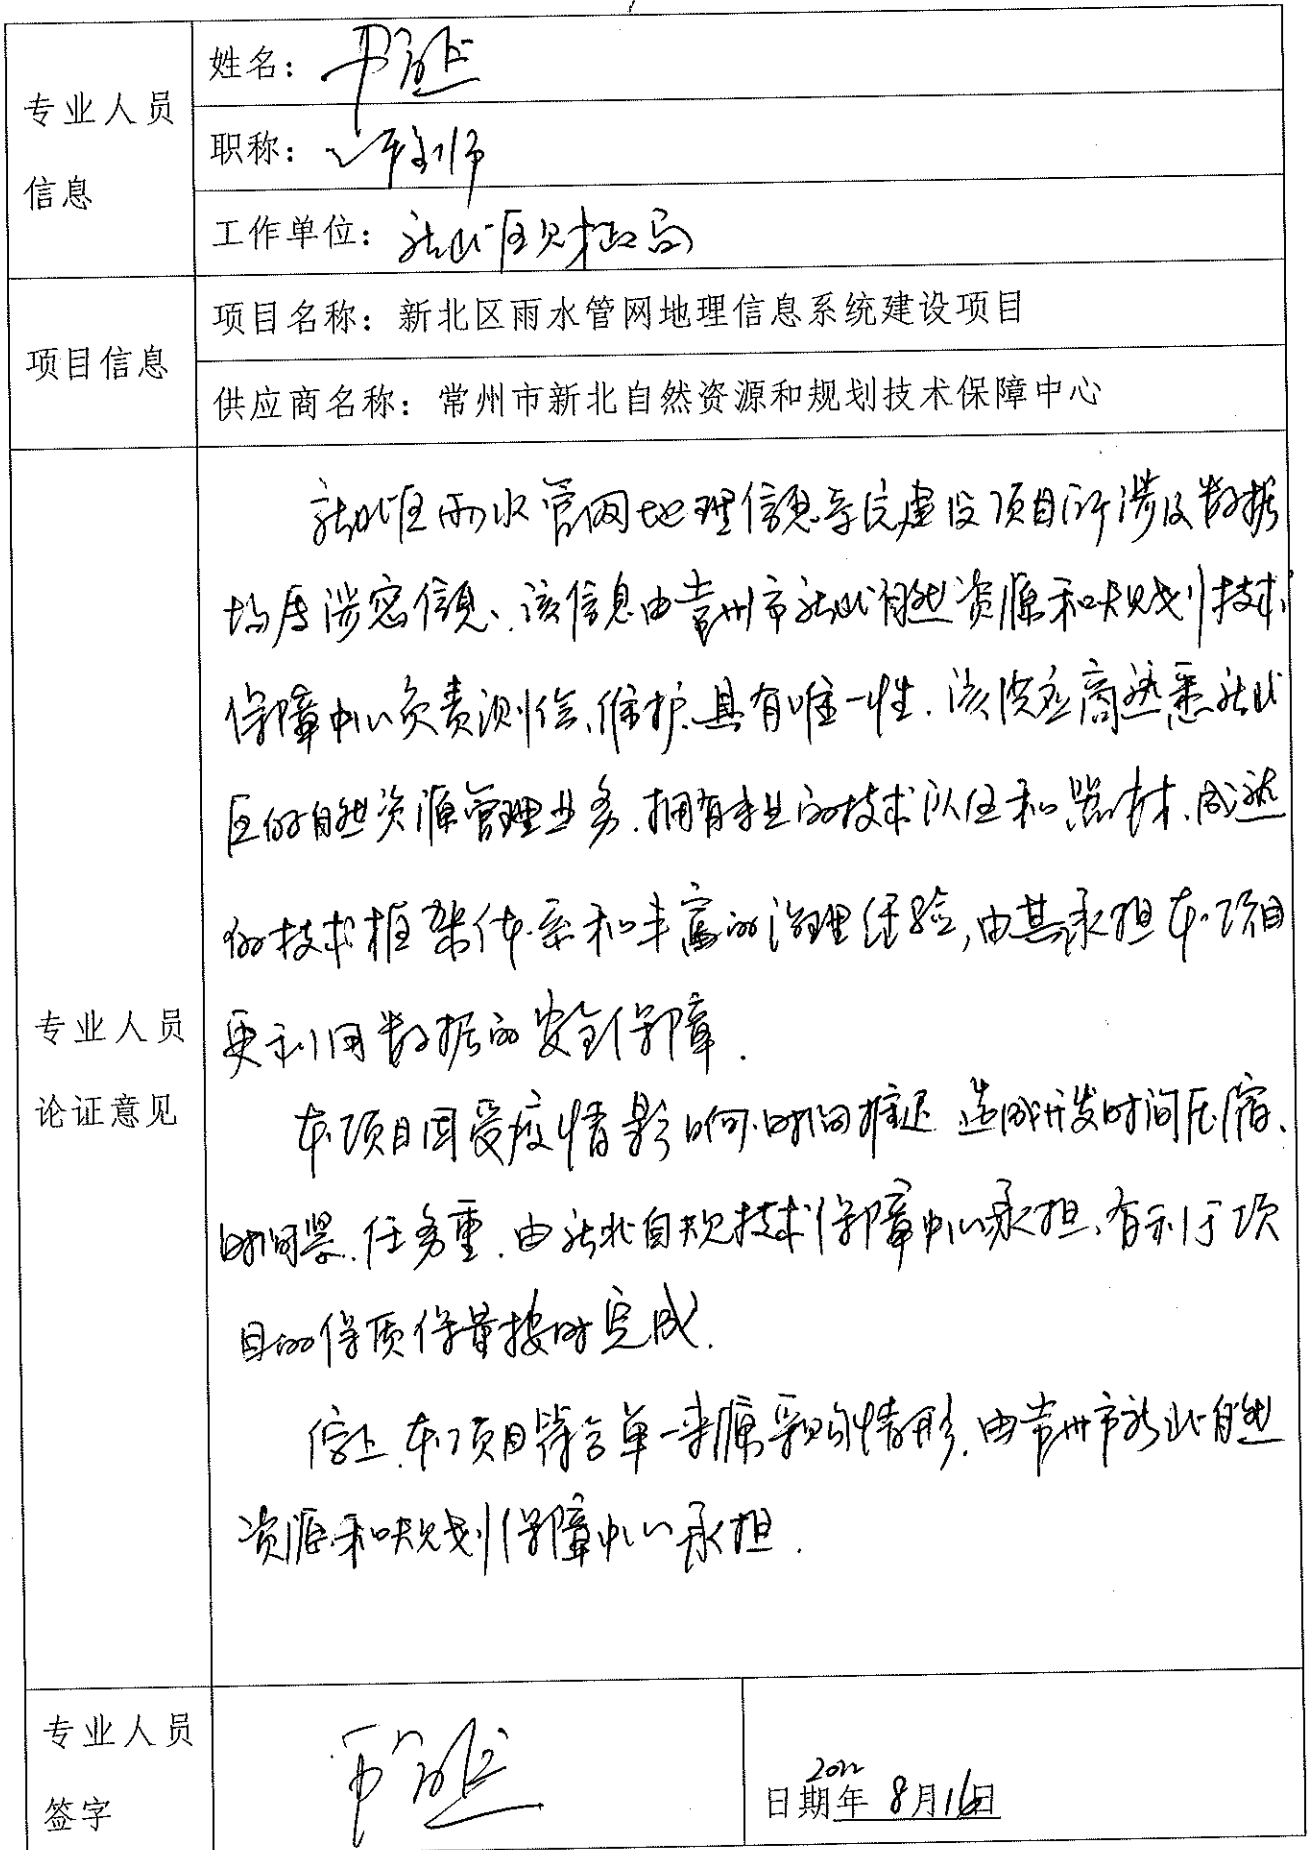 专业人员
信息
姓名：
职称：
工作单位：新北区财政局
项目信息
项目名称：新北区雨水管网地理信息系统建设项目
供应商名称：常州市新北自然资源和规划技术保障中心
专业人员
论证意见
新北区雨水管网地理信息系统建设项目所涉及数据
均属涉密信息、该信息由常州市新北自然资源和规划技术
保障中心负责测绘、维护、具有唯一性. 该供应商熟悉新北
区的自然资源管理业务. 拥有专业的技术队伍和器材. 成熟
的技术框架体系和丰富的治理经验, 由其承担本项目
更利用数据的安全保障.
本项目因受疫情影响. 时间推迟 造成开发时间压缩、
时间紧. 任务重. 由新北自规技术保障中心承担、有利于项
目的保质保量按时完成.
综上. 本项目符合单一来源采购情形. 由常州市新北自然
资源和规划保障中心承担.
专业人员
签字
日期2022年 8月16日